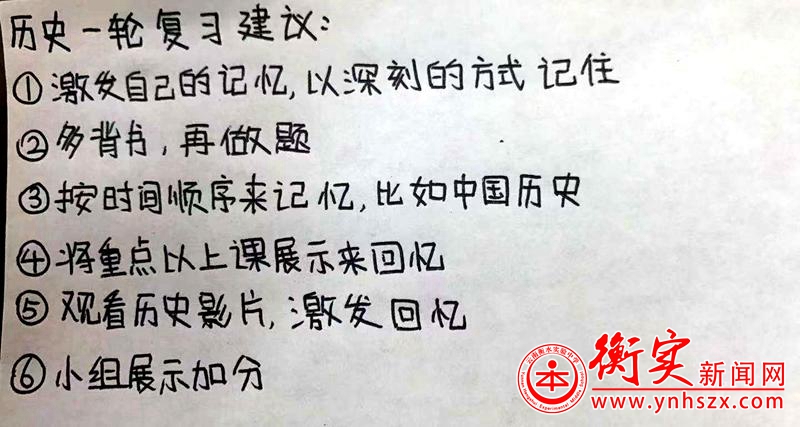 历史一轮复习建议:
①激发自己的记忆,以深刻的方式记住
②多背书,再做题
③按时间顺序来记忆,比如中国历史
④将重点以上课展示来回忆
⑤观看历史影片,激发回忆
⑥小组展示加分
云南衡水实验中学
衡实新闻网
www.ynhszx.com